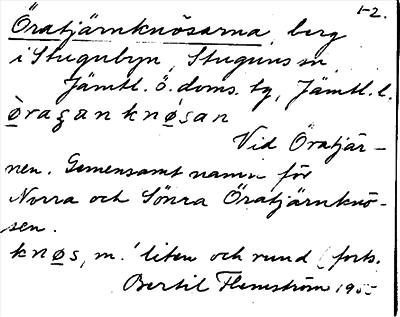 1-2.
Öratjärnknösarna, berg
i Stugubyn, Stuguns sn
Jämtl. ö. doms. tg, Jämtl. l.
øraʒanknøsan
Vid Öratjär-
nen. Gemensamt namn för
Norra och Sönra Öratjärnknö-
sen.
knøs, m. 'liten och rund (forts.
Bertil Flemström 1955